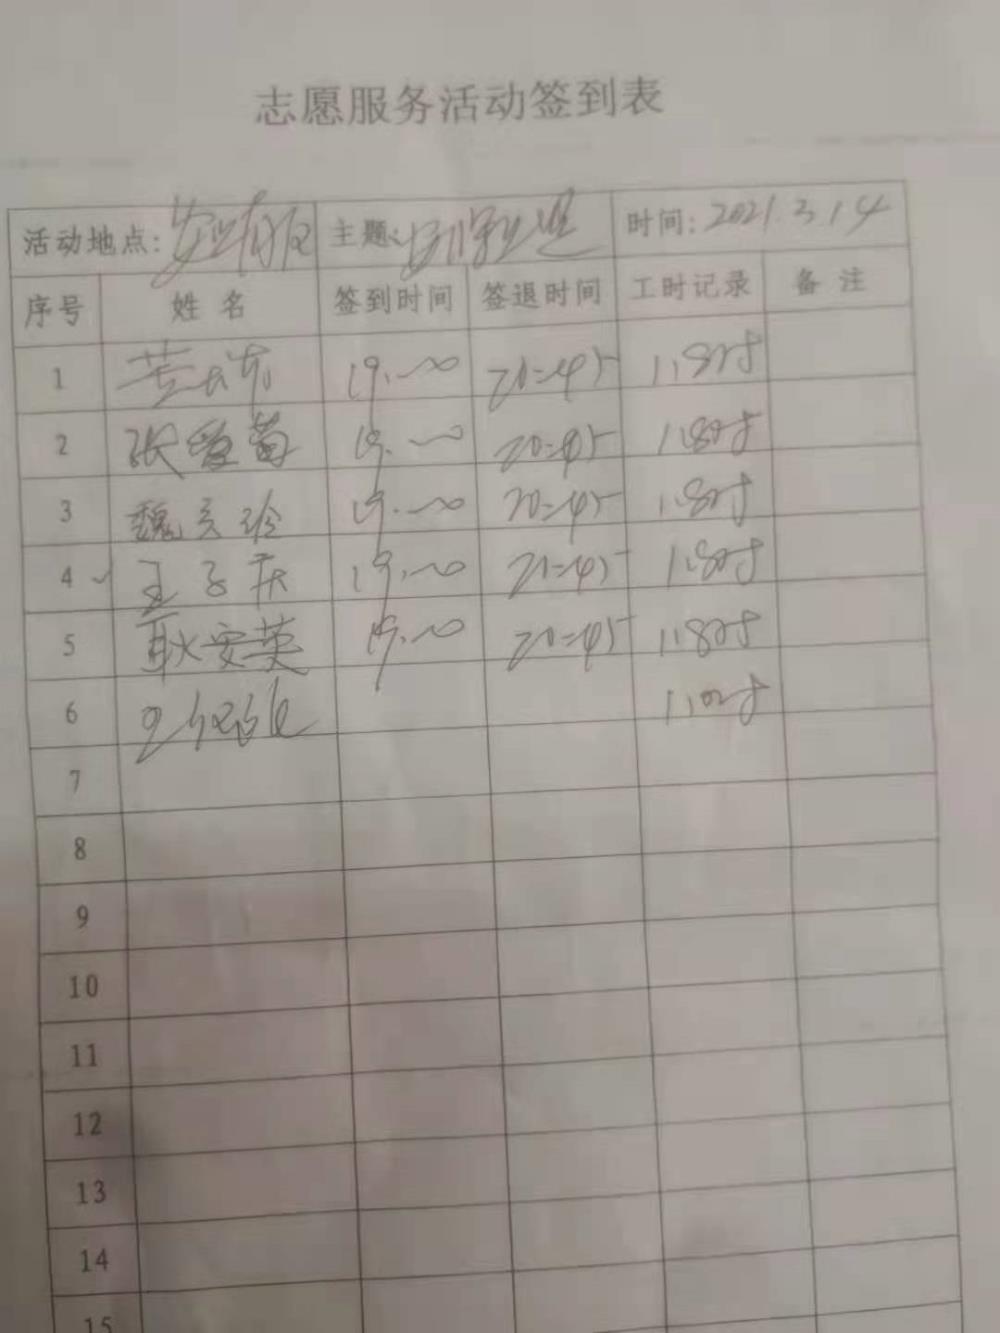 志愿服务活动签到表
活动地点: 主题: 时间: 2021.3.14
序号 姓名 签到时间 签退时间 工时记录 备注
1 19:00 20:45 1.8时
2 张爱菊 19:00 20:45 1.8时
3 魏彦玲 19:00 20:45 1.8时
4 王子庆 19:00 20:45 1.8时
5 耿安英 19:00 20:45 1.8时
6 1.0时
7
8
9
10
11
12
13
14
15